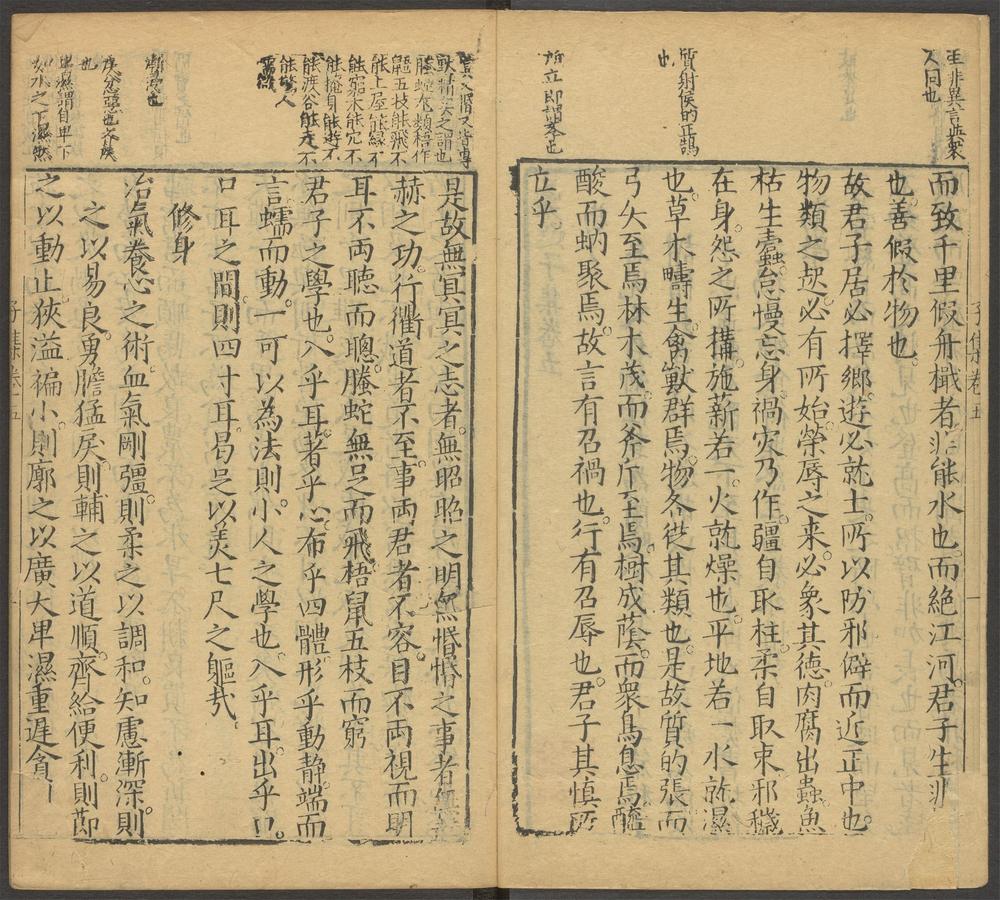 王非異言與衆
人同也
質射侯的正鵠
也
所立即謂學也
而致千里假舟檝者非能水也而絶江河君子生非
也善假於物也
故君子居必擇鄉遊必就士所以防邪僻而近正中也
物類之起必有所始榮辱之来必象其德肉腐出蟲魚
枯生蠹怠慢忘身禍灾乃作彊自取柱柔自取束邪穢
在身怨之所搆施薪若一火就燥也平地若一水就濕
也草木疇生禽獸群焉物各從其類也是故質的張而
弓矢至焉林木茂而斧斤至焉樹成蔭而衆鳥息焉醯
酸而蚋聚焉故言有召禍也行有召辱也君子其慎所
立乎
子集卷五
冥冥惛惛皆專
默精誠之謂也
螣蛇龍類梧作
鼯五枝能飛不
能上屋能緣不
能窮木能穴不
能掩身能游不
能渡谷能走不
能驚人
漸深也
也
卑濕謂自卑下
如水之下濕然
是故無冥冥之志者無昭昭之明無惛惛之事者無赫
赫之功行衢道者不至事兩君者不容目不兩視而明
耳不兩聽而聰螣蛇無足而飛梧鼠五枝而窮
君子之學也入乎耳著乎心布乎四體形乎動静端而
言蠕而動一可以為法則小人之學也入乎耳出乎口
口耳之間則四寸耳曷足以美七尺之軀㢤
修身
治氣養心之術血氣剛彊則柔之以調和知慮漸深則
之以易良勇膽猛戾則輔之以道順齊給便利則節
之以動止狹溢褊小則廓之以廣大卑濕重遲貪
子集卷五